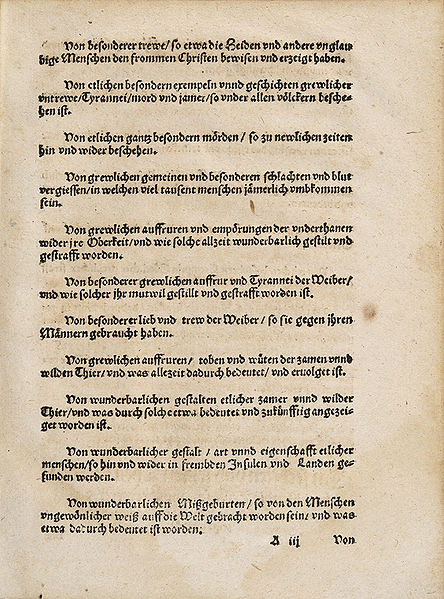 Von besonderer trewe/ so etwa die Heiden vnd andere vnglau-
bige Menschen den frommen Christen bewisen vnd erzeigt haben.
Von etlichen besondern exempeln vnnd geschichten grewlicher
vntrewe/Tyrannei/mord vnd jamer/so vnder allen völckern besche-
hen ist.
Von etlichen gantz besondern mörden/ so zu newlichen zeiten
hin vnd wider beschehen.
Von grewlichen gemeinen vnd besonderen schlachten vnd blut
vergiessen/in welchen viel tausent menschen jämerlich vmbkommen
sein.
Von grewlichen auffruren vnd empörungen der vnderthanen
wider jre Oberkeit/vnd wie solche allzeit wunderbarlich gestilt vnd
gestrafft worden.
Von besonderer grewlichen auffrur vnd Tyrannei der Weiber/
vnd wie solcher jhr mutwil gestillt vnd gestrafft worden ist.
Von besonderer lieb vnd trew der Weiber/ so sie gegen jhren
Männern gebraucht haben.
Von grewlichen auffruren/ toben vnd wüten der zamen vnnd
wilden Thier/ vnd was allezeit dadurch bedeutet/ vnd ervolget ist.
Von wunderbarlichen gestalten etlicher zamer vnnd wilder
Thier/vnd was durch solche etwa bedeutet vnd zukünfftig angezei-
get worden ist.
Von wunderbarlicher gestalt/ art vnnd eigenschafft etlicher
menschen/so hin vnd wider in frembden Insulen vnd Landen ge-
funden werden.
Von wunderbarlichen Mißgeburten/ so von den Menschen
vngewönlicher weiß auff die Welt gebracht worden sein/ vnd was
etwa dadurch bedeutet ist worden.
A iij Von